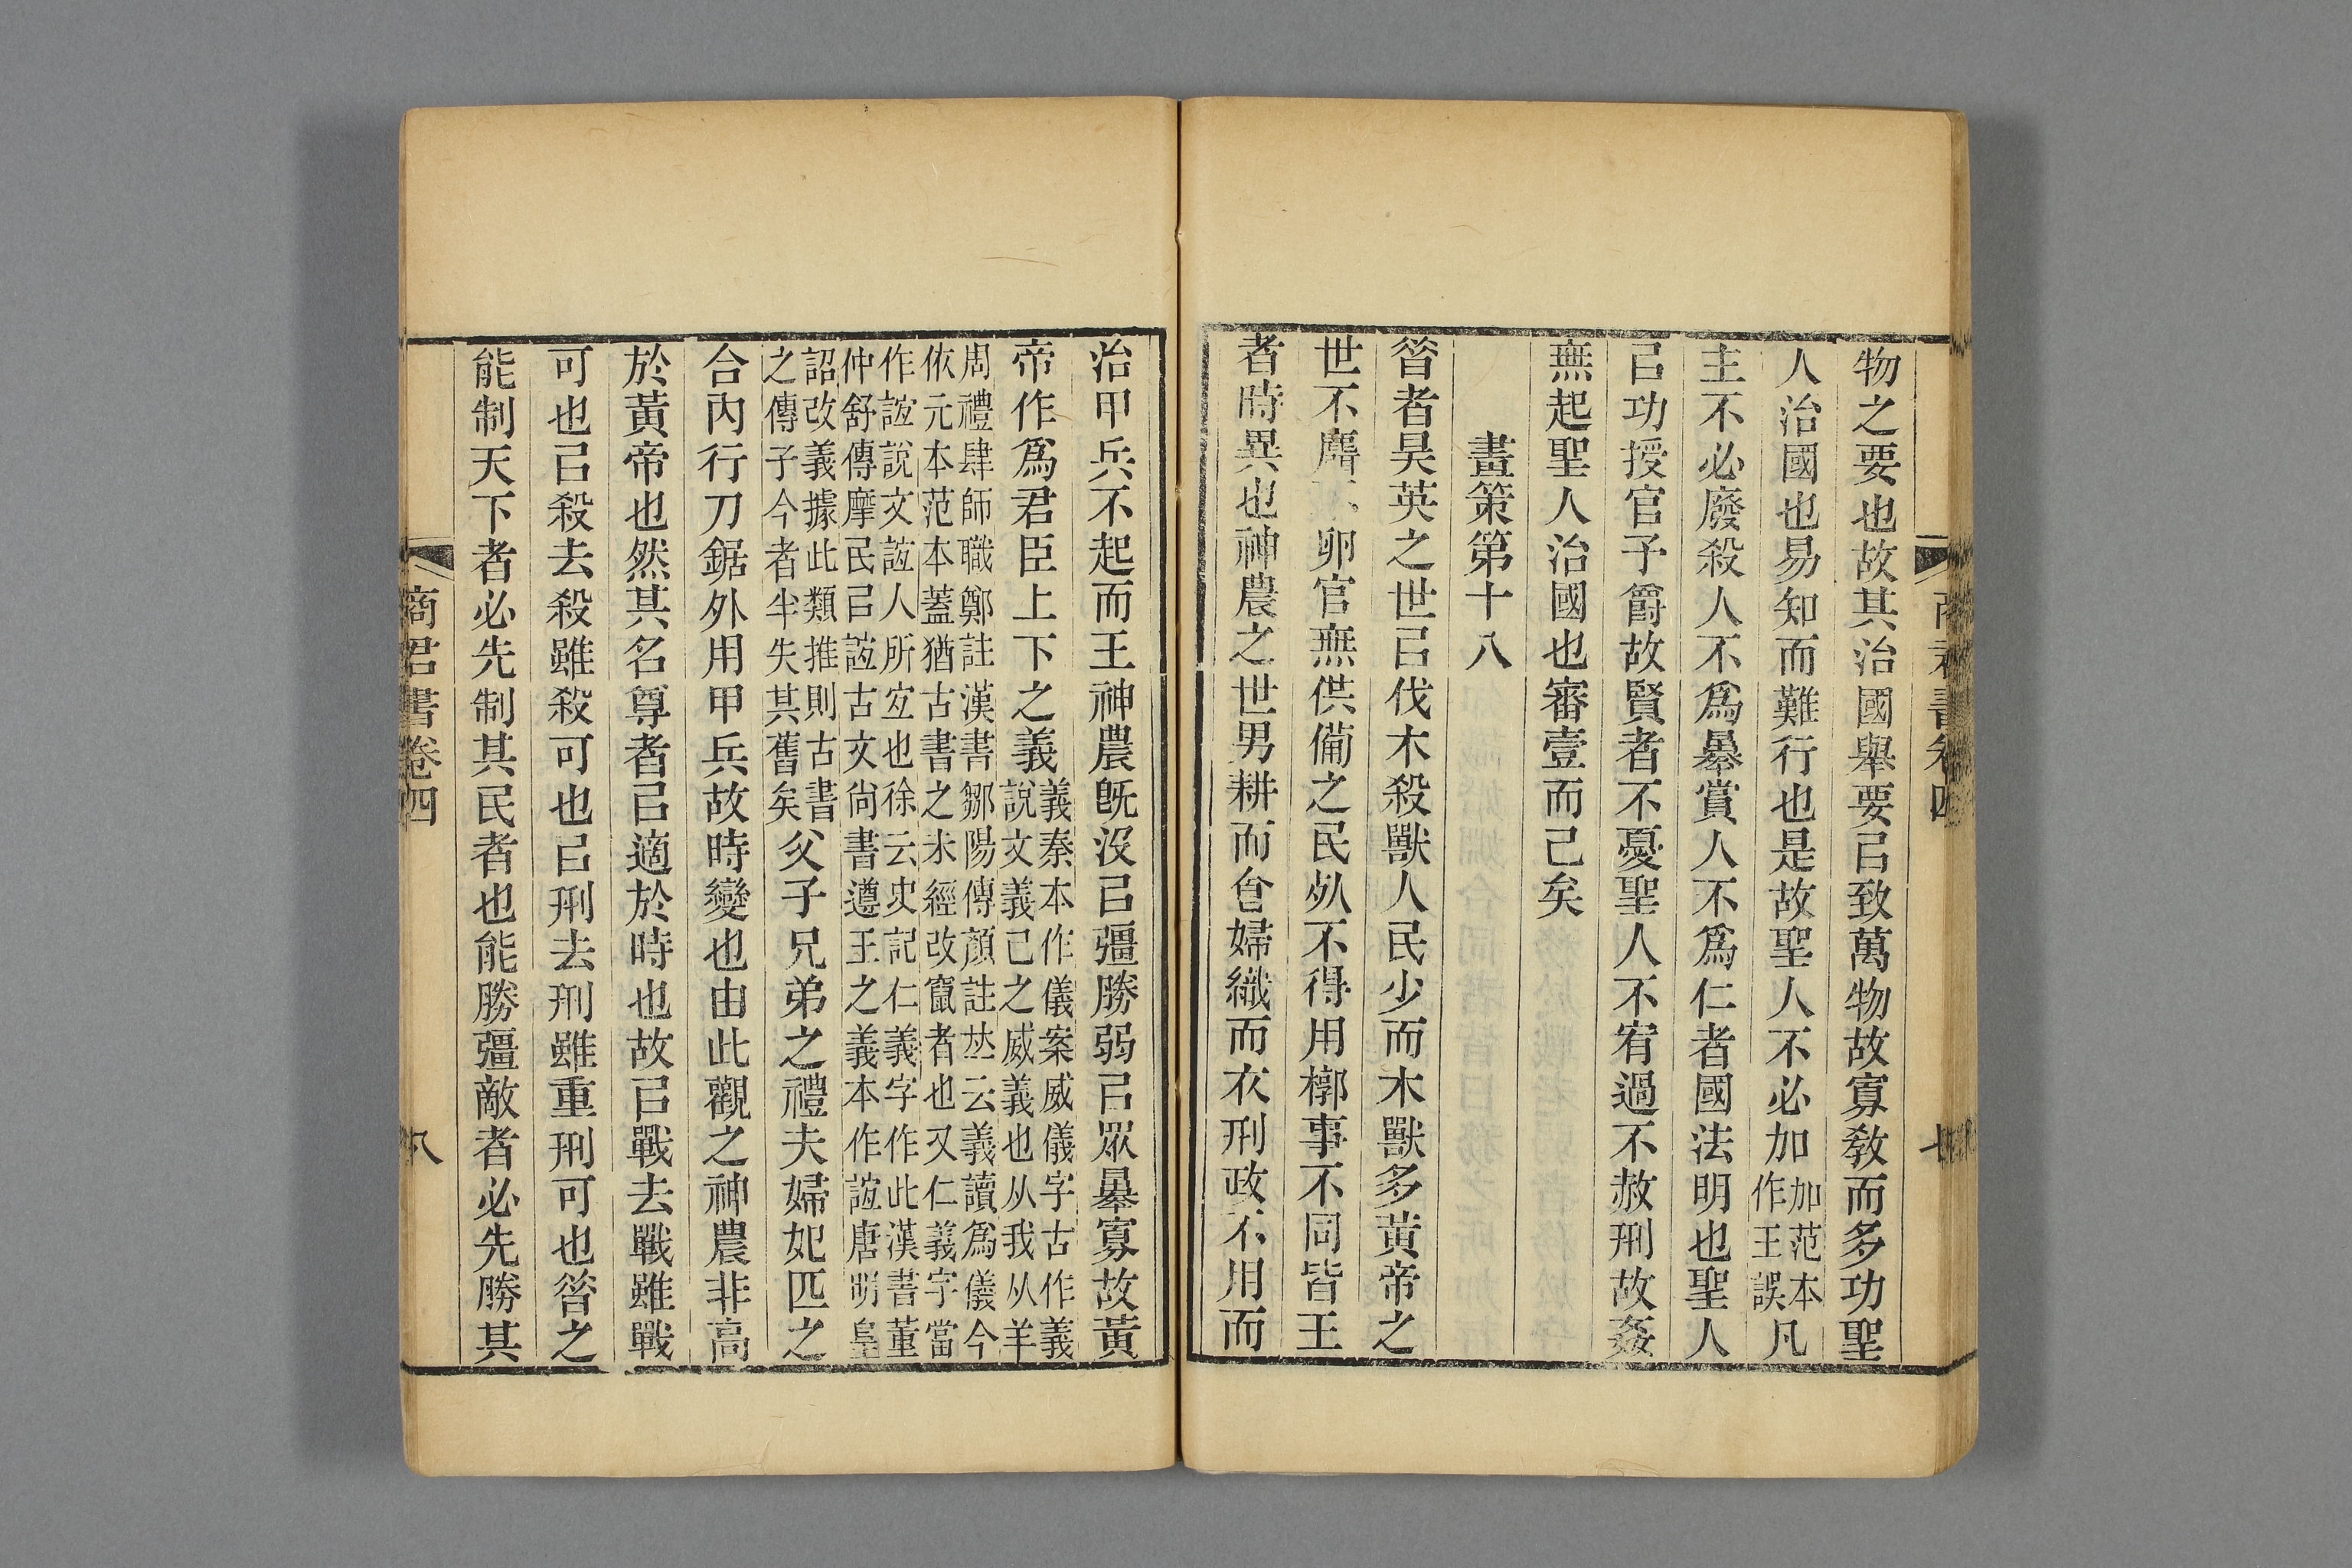 物之要也故其治國舉要㠯致萬物故寡敎而多功聖
人治國也易知而難行也是故聖人不必加加范本作王誤凡
主不必廢殺人不爲暴賞人不爲仁者國法明也聖人
㠯功授官予爵故賢者不憂聖人不宥過不赦刑故姦
無起聖人治國也審壹而已矣
畫策第十八
昝者昊英之世㠯伐木殺獸人民少而木獸多黃帝之
世不麛卵官無供備之民死不得用槨事不同皆王
者時異也神農之世男耕而食婦織而衣刑政不用而
治甲兵不起而王神農旣沒㠯彊勝弱㠯眾暴寡故黃
帝作爲君臣上下之義義秦本作儀案威儀字古作義說文義己之威義也从我从羊
周禮肆師職鄭註漢書鄒陽傳顏註竝云義讀爲儀今依元本范本蓋猶古書之未經改竄者也又仁義字當
作誼說文誼人所宜也徐云史記仁義字作此漢書董仲舒傳摩民㠯誼古文尙書遵王之義本作誼唐明皇
詔改義據此類推則古書之傳子今者半失其舊矣父子兄弟之禮夫婦妃匹之
合內行刀鋸外用甲兵故時變也由此觀之神農非高
於黃帝也然其名尊者㠯適於時也故㠯戰去戰雖戰
可也㠯殺去殺雖殺可也㠯刑去刑雖重刑可也昝之
能制天下者必先制其民者也能勝彊敵者必先勝其
商君書卷四
八